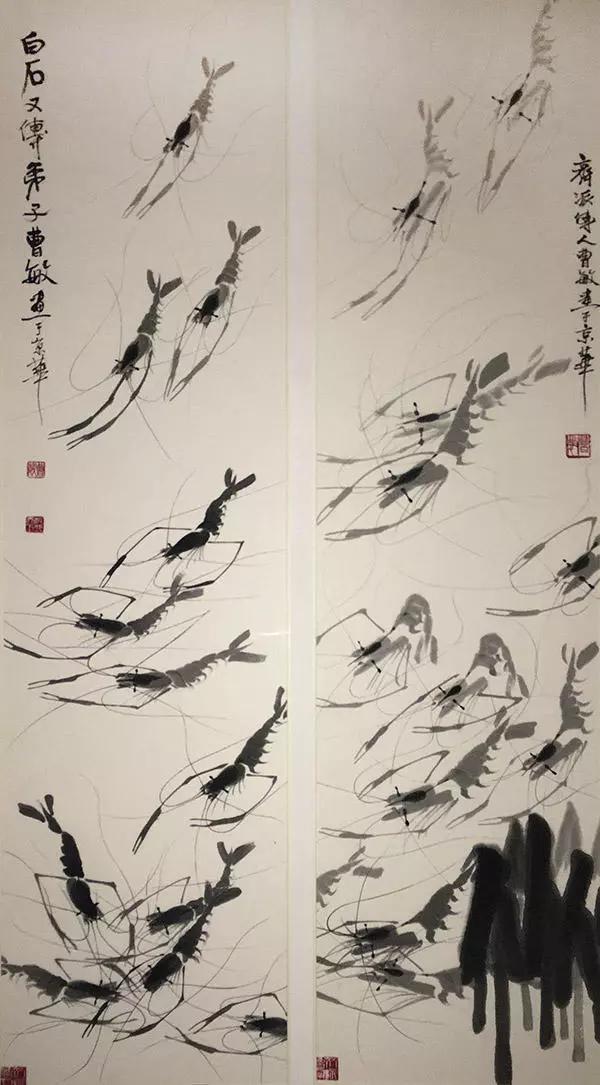 齊派傳人曹敏畫于京華
白石又傳弟子曹敏畫于京華